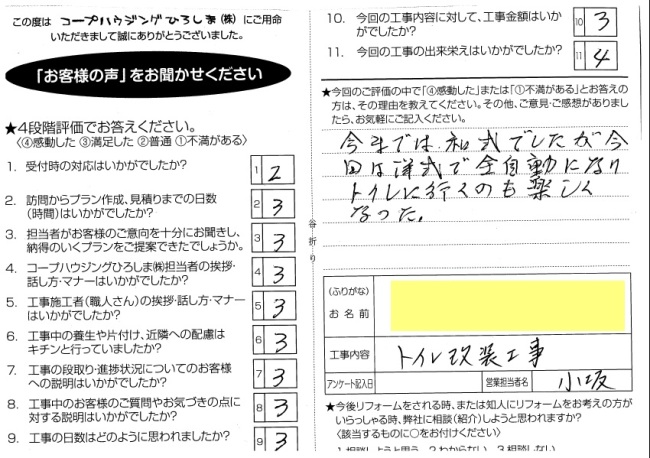 この度は コープハウジングひろしま(株) にご用命
いただきまして誠にありがとうございました。
「お客様の声」をお聞かせください
★4段階評価でお答えください。
〈④感動した ③満足した ②普通 ①不満がある〉
1. 受付時の対応はいかがでしたか?
1 2
2. 訪問からプラン作成、見積りまでの日数
(時間)はいかがでしたか?
2 3
3. 担当者がお客様のご意向を十分にお聞きし、
納得のいくプランをご提案できたでしょうか。
3 3
4. コープハウジングひろしま㈱担当者の挨拶・
話し方・マナーはいかがでしたか?
4 3
5. 工事施工者(職人さん)の挨拶・話し方・マナー
はいかがでしたか?
5 3
6. 工事中の養生や片付け、近隣への配慮は
キチンと行っていましたか?
6 3
7. 工事の段取り・進捗状況についてのお客様
への説明はいかがでしたか?
7 3
8. 工事中のお客様のご質問やお気づきの点に
対する説明はいかがでしたか?
8 3
9. 工事の日数はどのように思われましたか?
9 3
谷折り
10. 今回の工事内容に対して、工事金額はいか
がでしたか?
10 3
11. 今回の工事の出来栄えはいかがでしたか?
11 4
★今回のご評価の中で「④感動した」または「①不満がある」とお答えの
方は、その理由を教えてください。その他、ご意見・ご感想がありまし
たら、お気軽にご記入ください。
今までは和式でしたが今
回は洋式で全自動になり
トイレに行くのも楽しく
なった。
(ふりがな)
お名前
工事内容 トイレ改装工事
アンケート記入日 営業担当者名 小坂
★今後リフォームをされる時、または知人にリフォームをお考えの方が
いらっしゃる時、弊社に相談(紹介)しようと思われますか?
〈該当するものに○をお付けください〉
1.相談しようと思う 2.わからない 3.相談しない